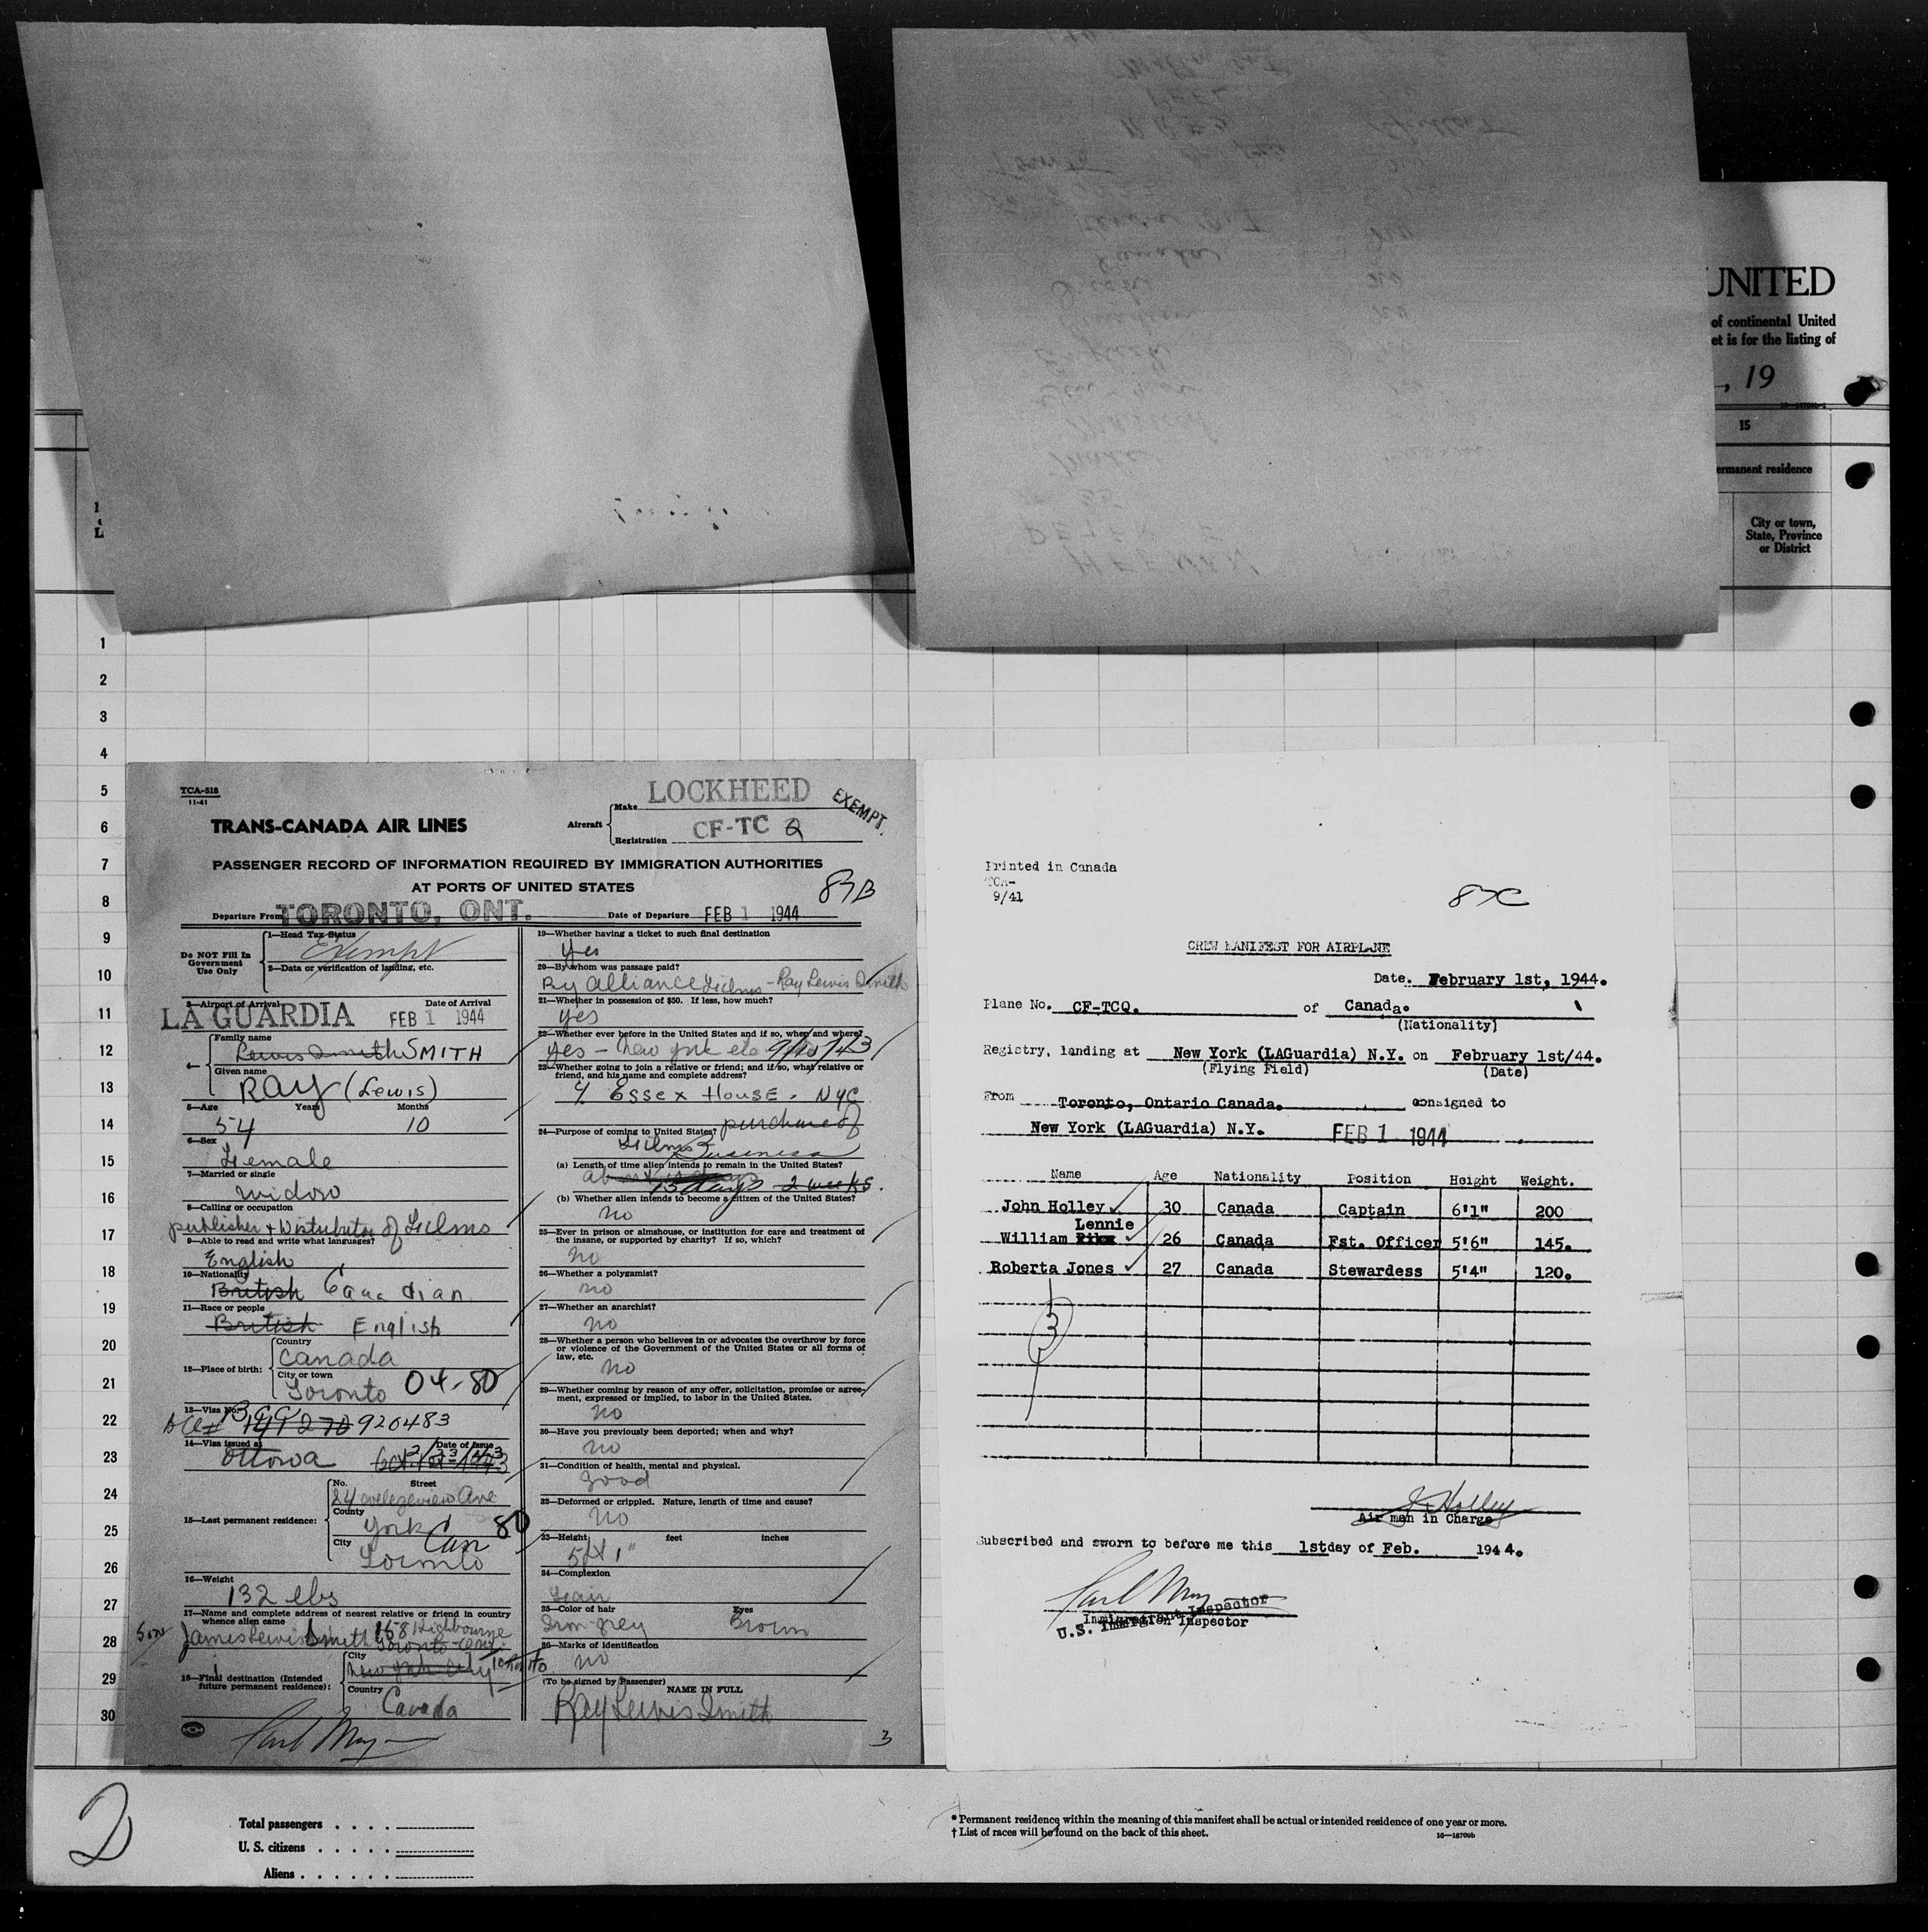 UNITED
of continental United
et is for the listing of
, 19
15
ermanent residence
City or town,
State, Province
or District
1
2
3
4
5
6
7
8
9
10
11
12
13
14
15
16
17
18
19
20
21
22
23
24
25
26
27
28
29
30
TCA-518
11-41
LOCKHEED
EXEMPT.
TRANS-CANADA AIR LINES
Aircraft
Make
Registration CF-TC Q
PASSENGER RECORD OF INFORMATION REQUIRED BY IMMIGRATION AUTHORITIES
AT PORTS OF UNITED STATES
87B
Departure From TORONTO, ONT. Date of Departure FEB 1 1944
Do NOT Fill In
Government
Use Only
1—Head Tax Status
Exempt
2—Data or verification of landing, etc.
3—Airport of Arrival Date of Arrival
LA GUARDIA FEB 1 1944
4— Family name
Lewis Smith SMITH
Given name
RAY (Lewis)
5—Age Years Months
54 10
6—Sex
Female
7—Married or single
widow
8—Calling or occupation
publisher + Distributor of Films
9—Able to read and write what languages?
English
10—Nationality
British Canadian
11—Race or people
British English
12—Place of birth:
Country
Canada
City or town
Toronto 04-80
13—Visa No.
920483
14—Visa issued at Date of Issue
Ottowa
15—Last permanent residence:
No. Street
24 Ave
County
York Can 80
City
Toronto
16—Weight
132 lbs
17—Name and complete address of nearest relative or friend in country
whence alien came
Son James Lewis Smith
Toronto
18—Final destination (Intended
future permanent residence):
City
New York City Toronto
Country
Canada
19—Whether having a ticket to such final destination
Yes
20—By whom was passage paid?
By Alliance Films - Ray Lewis Smith
21—Whether in possession of $50. If less, how much?
yes
22—Whether ever before in the United States and if so, when and where?
yes - New York etc
23—Whether going to join a relative or friend; and if so, what relative or
friend, and his name and complete address?
% Essex House. NYC
24—Purpose of coming to United States? purchase of
Films Business
(a) Length of time alien intends to remain in the United States?
15 days 2 weeks.
(b) Whether alien intends to become a citizen of the United States?
no
25—Ever in prison or almshouse, or institution for care and treatment of
the insane, or supported by charity? If so, which?
no
26—Whether a polygamist?
no
27—Whether an anarchist?
no
28—Whether a person who believes in or advocates the overthrow by force
or violence of the Government of the United States or all forms of
law, etc.
no
29—Whether coming by reason of any offer, solicitation, promise or agree-
ment, expressed or implied, to labor in the United States.
no
30—Have you previously been deported; when and why?
no
31—Condition of health, mental and physical.
good
32—Deformed or crippled. Nature, length of time and cause?
no
33—Height feet inches
5 ft 1"
34—Complexion
Fair
35—Color of hair Eyes
Iron-grey Brown
36—Marks of identification
no
(To be signed by Passenger)
NAME IN FULL
Ray Lewis Smith
3
Printed in Canada
TCA-
9/41
87C
CREW MANIFEST FOR AIRPLANE
Date. February 1st, 1944.
Plane No. CF-TCQ. of Canada.
(Nationality)
Registry, landing at New York (LAGuardia) N.Y. on February 1st/44.
(Flying Field) (Date)
From Toronto, Ontario Canada. consigned to
New York (LAGuardia) N.Y. FEB 1 1944
Name Age Nationality Position Height Weight.
John Holley 30 Canada Captain 6'1" 200
Lennie
William 26 Canada Fst. Officer 5'6" 145.
Roberta Jones 27 Canada Stewardess 5'4" 120.
3
J Holley
Air man in Charge
Subscribed and sworn to before me this 1st day of Feb. 1944.
Immigration Inspector
U.S. Immigrant Inspector
2
Total passengers
U. S. citizens
Aliens
* Permanent residence within the meaning of this manifest shall be actual or intended residence of one year or more.
† List of races will be found on the back of this sheet.
16—18709b